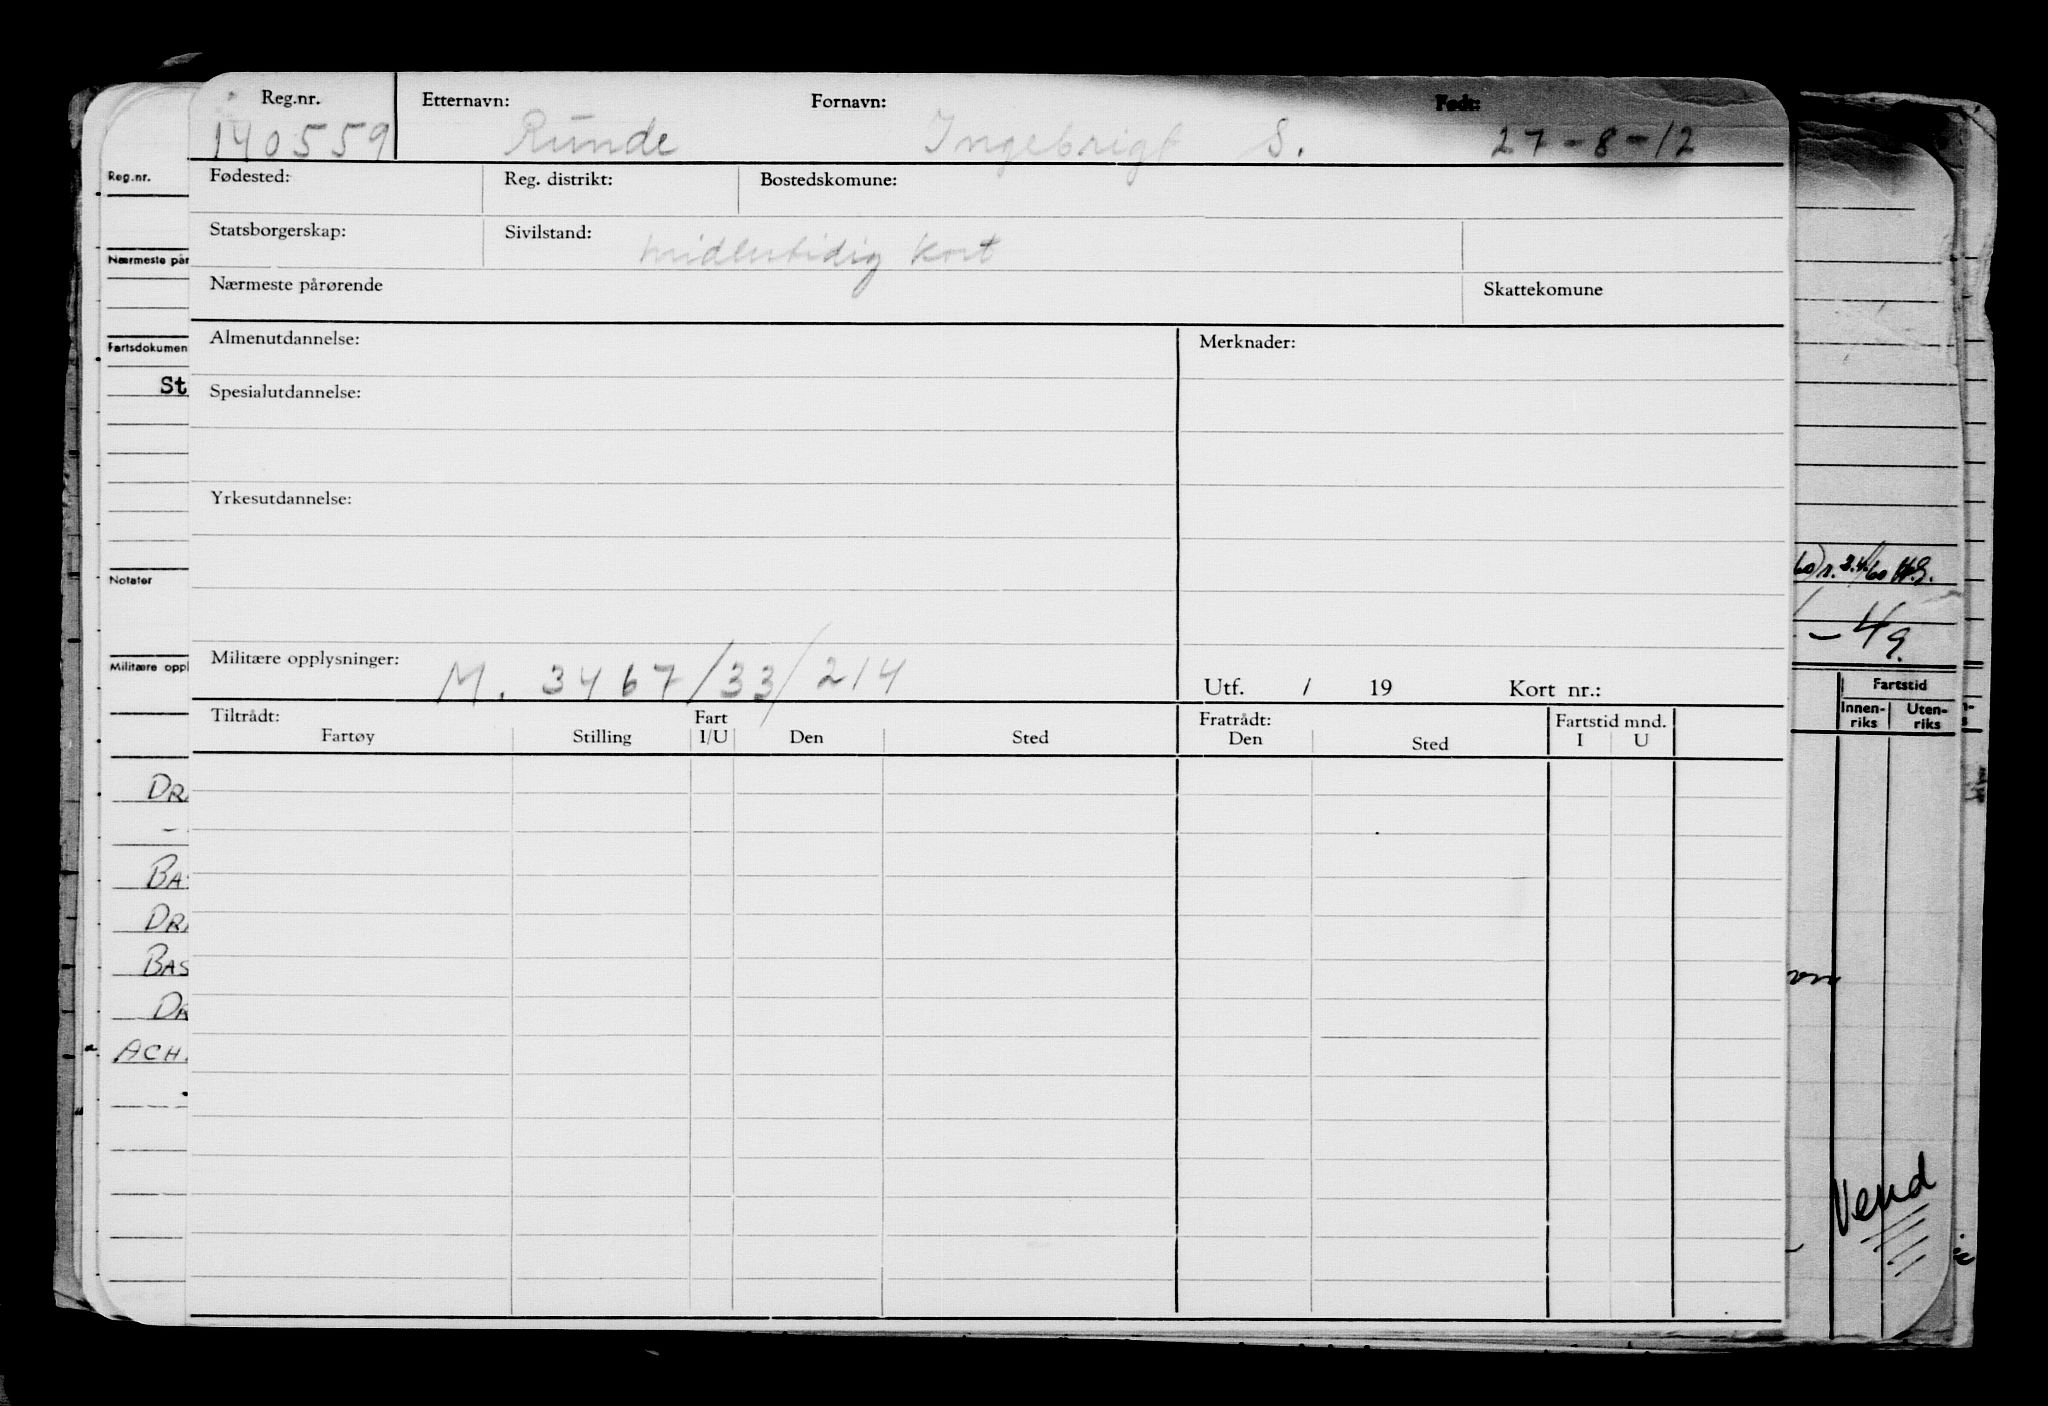 Reg.nr. Etternavn: Fornavn: Født:
140559 Runde Ingebrigt S. 27-8-12
Fødested: Reg. distrikt: Bostedskomune:
Statsborgerskap: Sivilstand: midlertidig kort
Nærmeste pårørende Skattekomune
Almenutdannelse: Merknader:
Spesialutdannelse:
Yrkesutdannelse:
Militære opplysninger: M. 3467/33/214 Utf. / 19 Kort nr.:
Tiltrådt: Fart Fratrådt: Fartstid mnd.
Fartøy Stilling I/U Den Sted Den Sted I U
Reg.nr.
Nærmeste pår
Fartsdokumen
St
Notater
Militære oppl
DRA
-
BAS
DRA
BAS
DR
ACH.
60) r. 2.4/60 H.G.
- 49
Fartstid
Innen- Uten-
riks riks
Vend